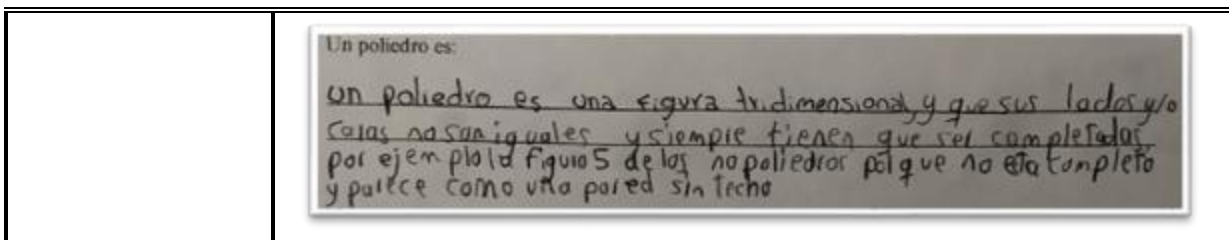 Un poliedro es:
un poliedro es una figura tridimensional, y que sus lados y/o
caras no son iguales y siempre tienen que ser completadas,
por ejemplo la figura 5 de los no poliedros porque no esta completo
y parece como una pared sin techo